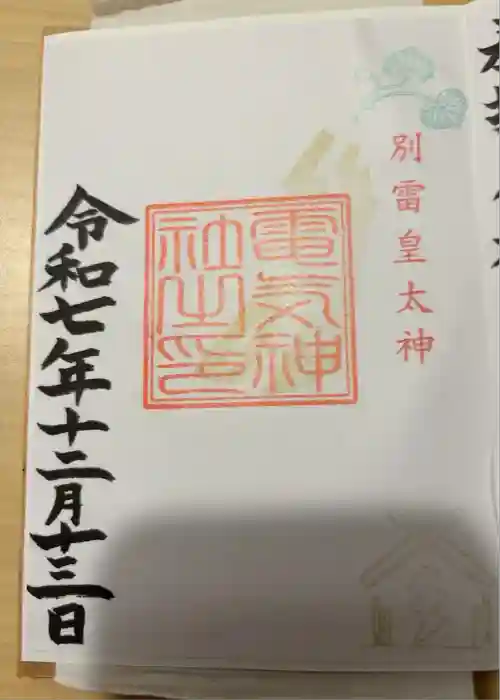 別雷皇太神
電気神
社之印
令和七年十二月十三日